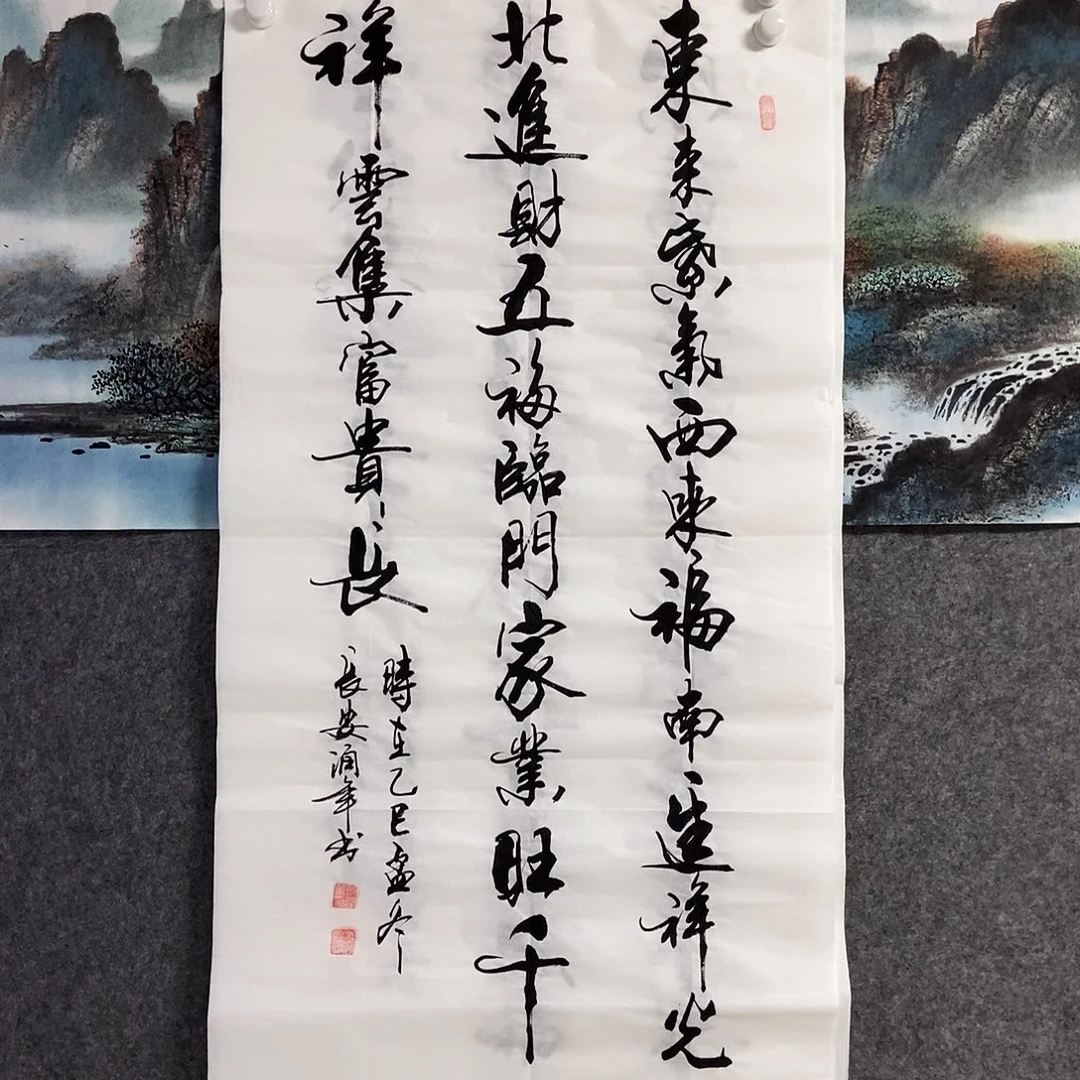 東来紫氣西来福南進祥光
北進財五福臨門家業旺千
祥雲集富貴長
時在乙巳孟冬
長安潤年书